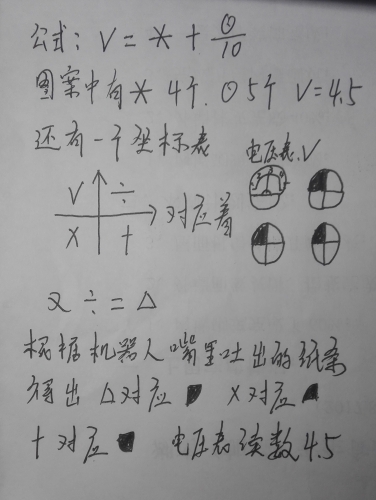 公式: V = * + θ/10
图案中有 * 4个. θ 5个 V=4.5
还有一个坐标表
电压表.V
V ÷
对应着
× +
× ÷ = △
根据机器人嘴里吐出的纸条
得出 △对应 ×对应
+对应 电压表读数4.5